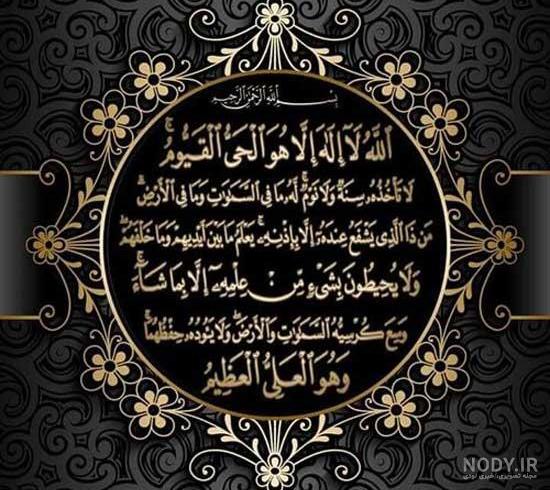 بِسْمِ اللَّهِ الرَّحْمَٰنِ الرَّحِيمِ
اللَّهُ لَا إِلَٰهَ إِلَّا هُوَ الْحَيُّ الْقَيُّومُ ۚ
لَا تَأْخُذُهُ سِنَةٌ وَلَا نَوْمٌ ۚ لَهُ مَا فِي السَّمَاوَاتِ وَمَا فِي الْأَرْضِ ۗ
مَن ذَا الَّذِي يَشْفَعُ عِندَهُ إِلَّا بِإِذْنِهِ ۚ يَعْلَمُ مَا بَيْنَ أَيْدِيهِمْ وَمَا خَلْفَهُمْ ۖ
وَلَا يُحِيطُونَ بِشَيْءٍ مِّنْ عِلْمِهِ إِلَّا بِمَا شَاءَ ۚ
وَسِعَ كُرْسِيُّهُ السَّمَاوَاتِ وَالْأَرْضَ ۖ وَلَا يَئُودُهُ حِفْظُهُمَا ۚ
وَهُوَ الْعَلِيُّ الْعَظِيمُ
NODY.IR
مجله تصویری، خبری نودی